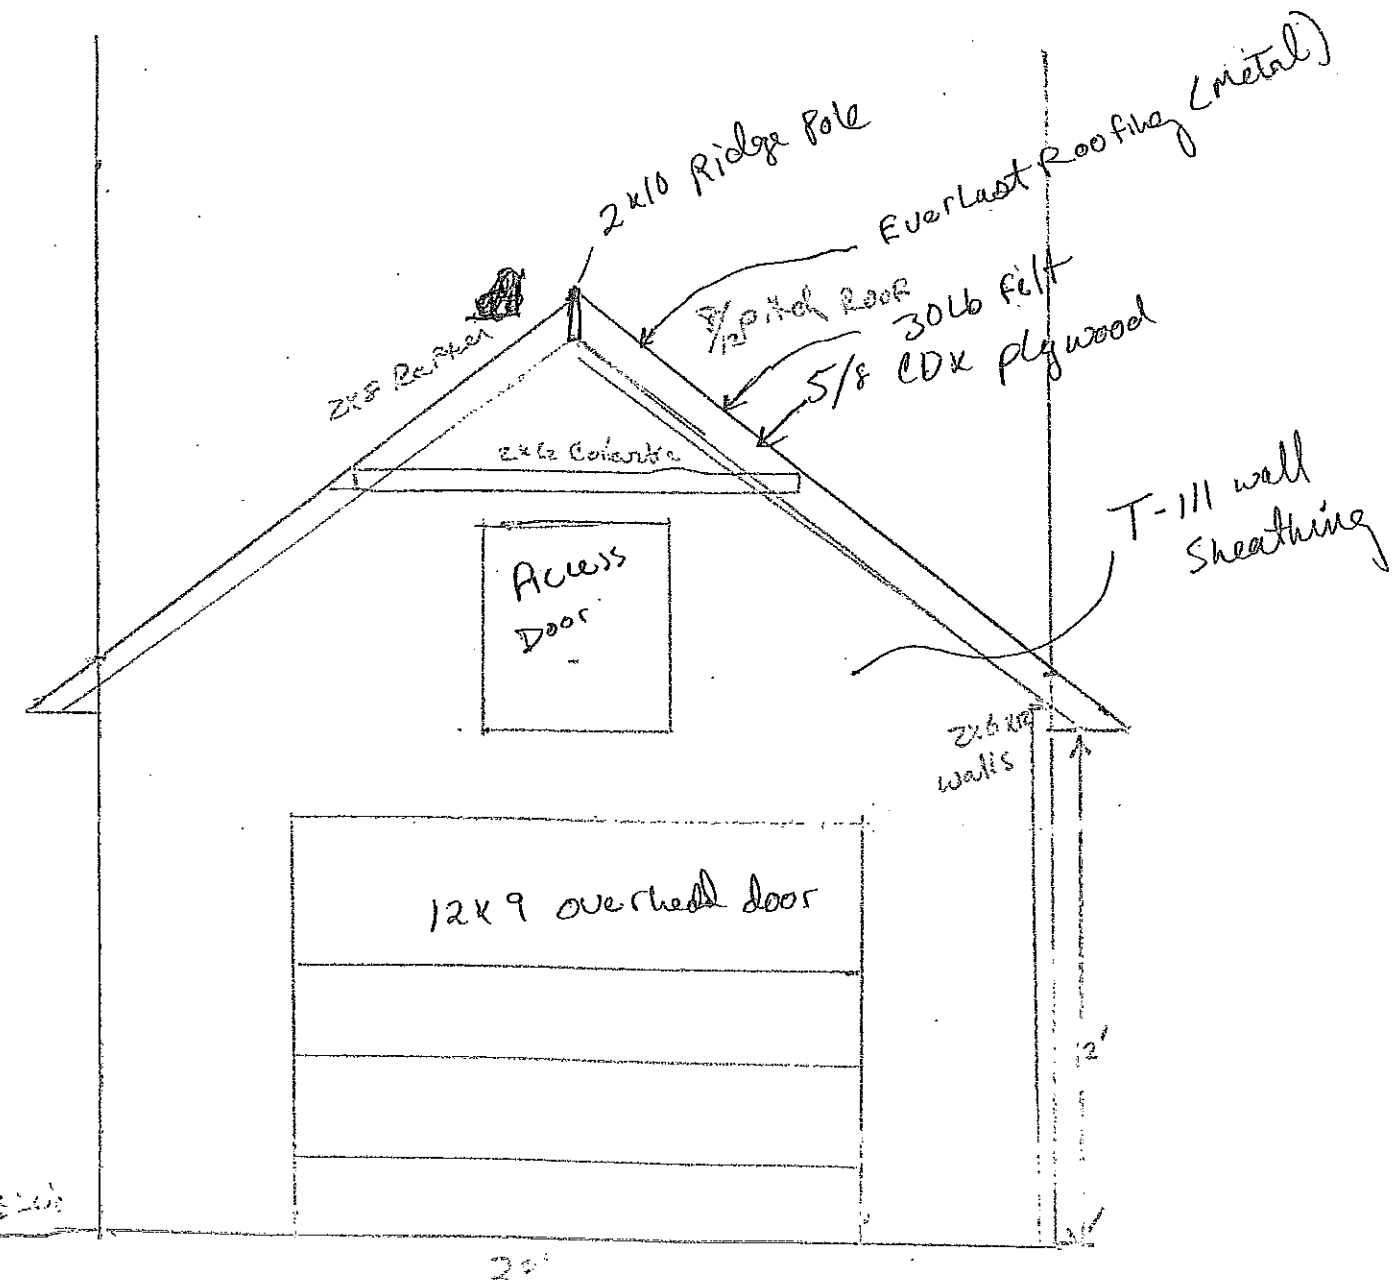 2x10 Ridge Pole
EverLast Roofing (Metal)
8/12 pitch Roof
30Lb Felt
5/8 CDX plywood
2x8 Rafter
2x6 Colartie
Access
Door
T-111 wall
Sheathing
2x6x12
walls
12x9 overhead door
12'
20'